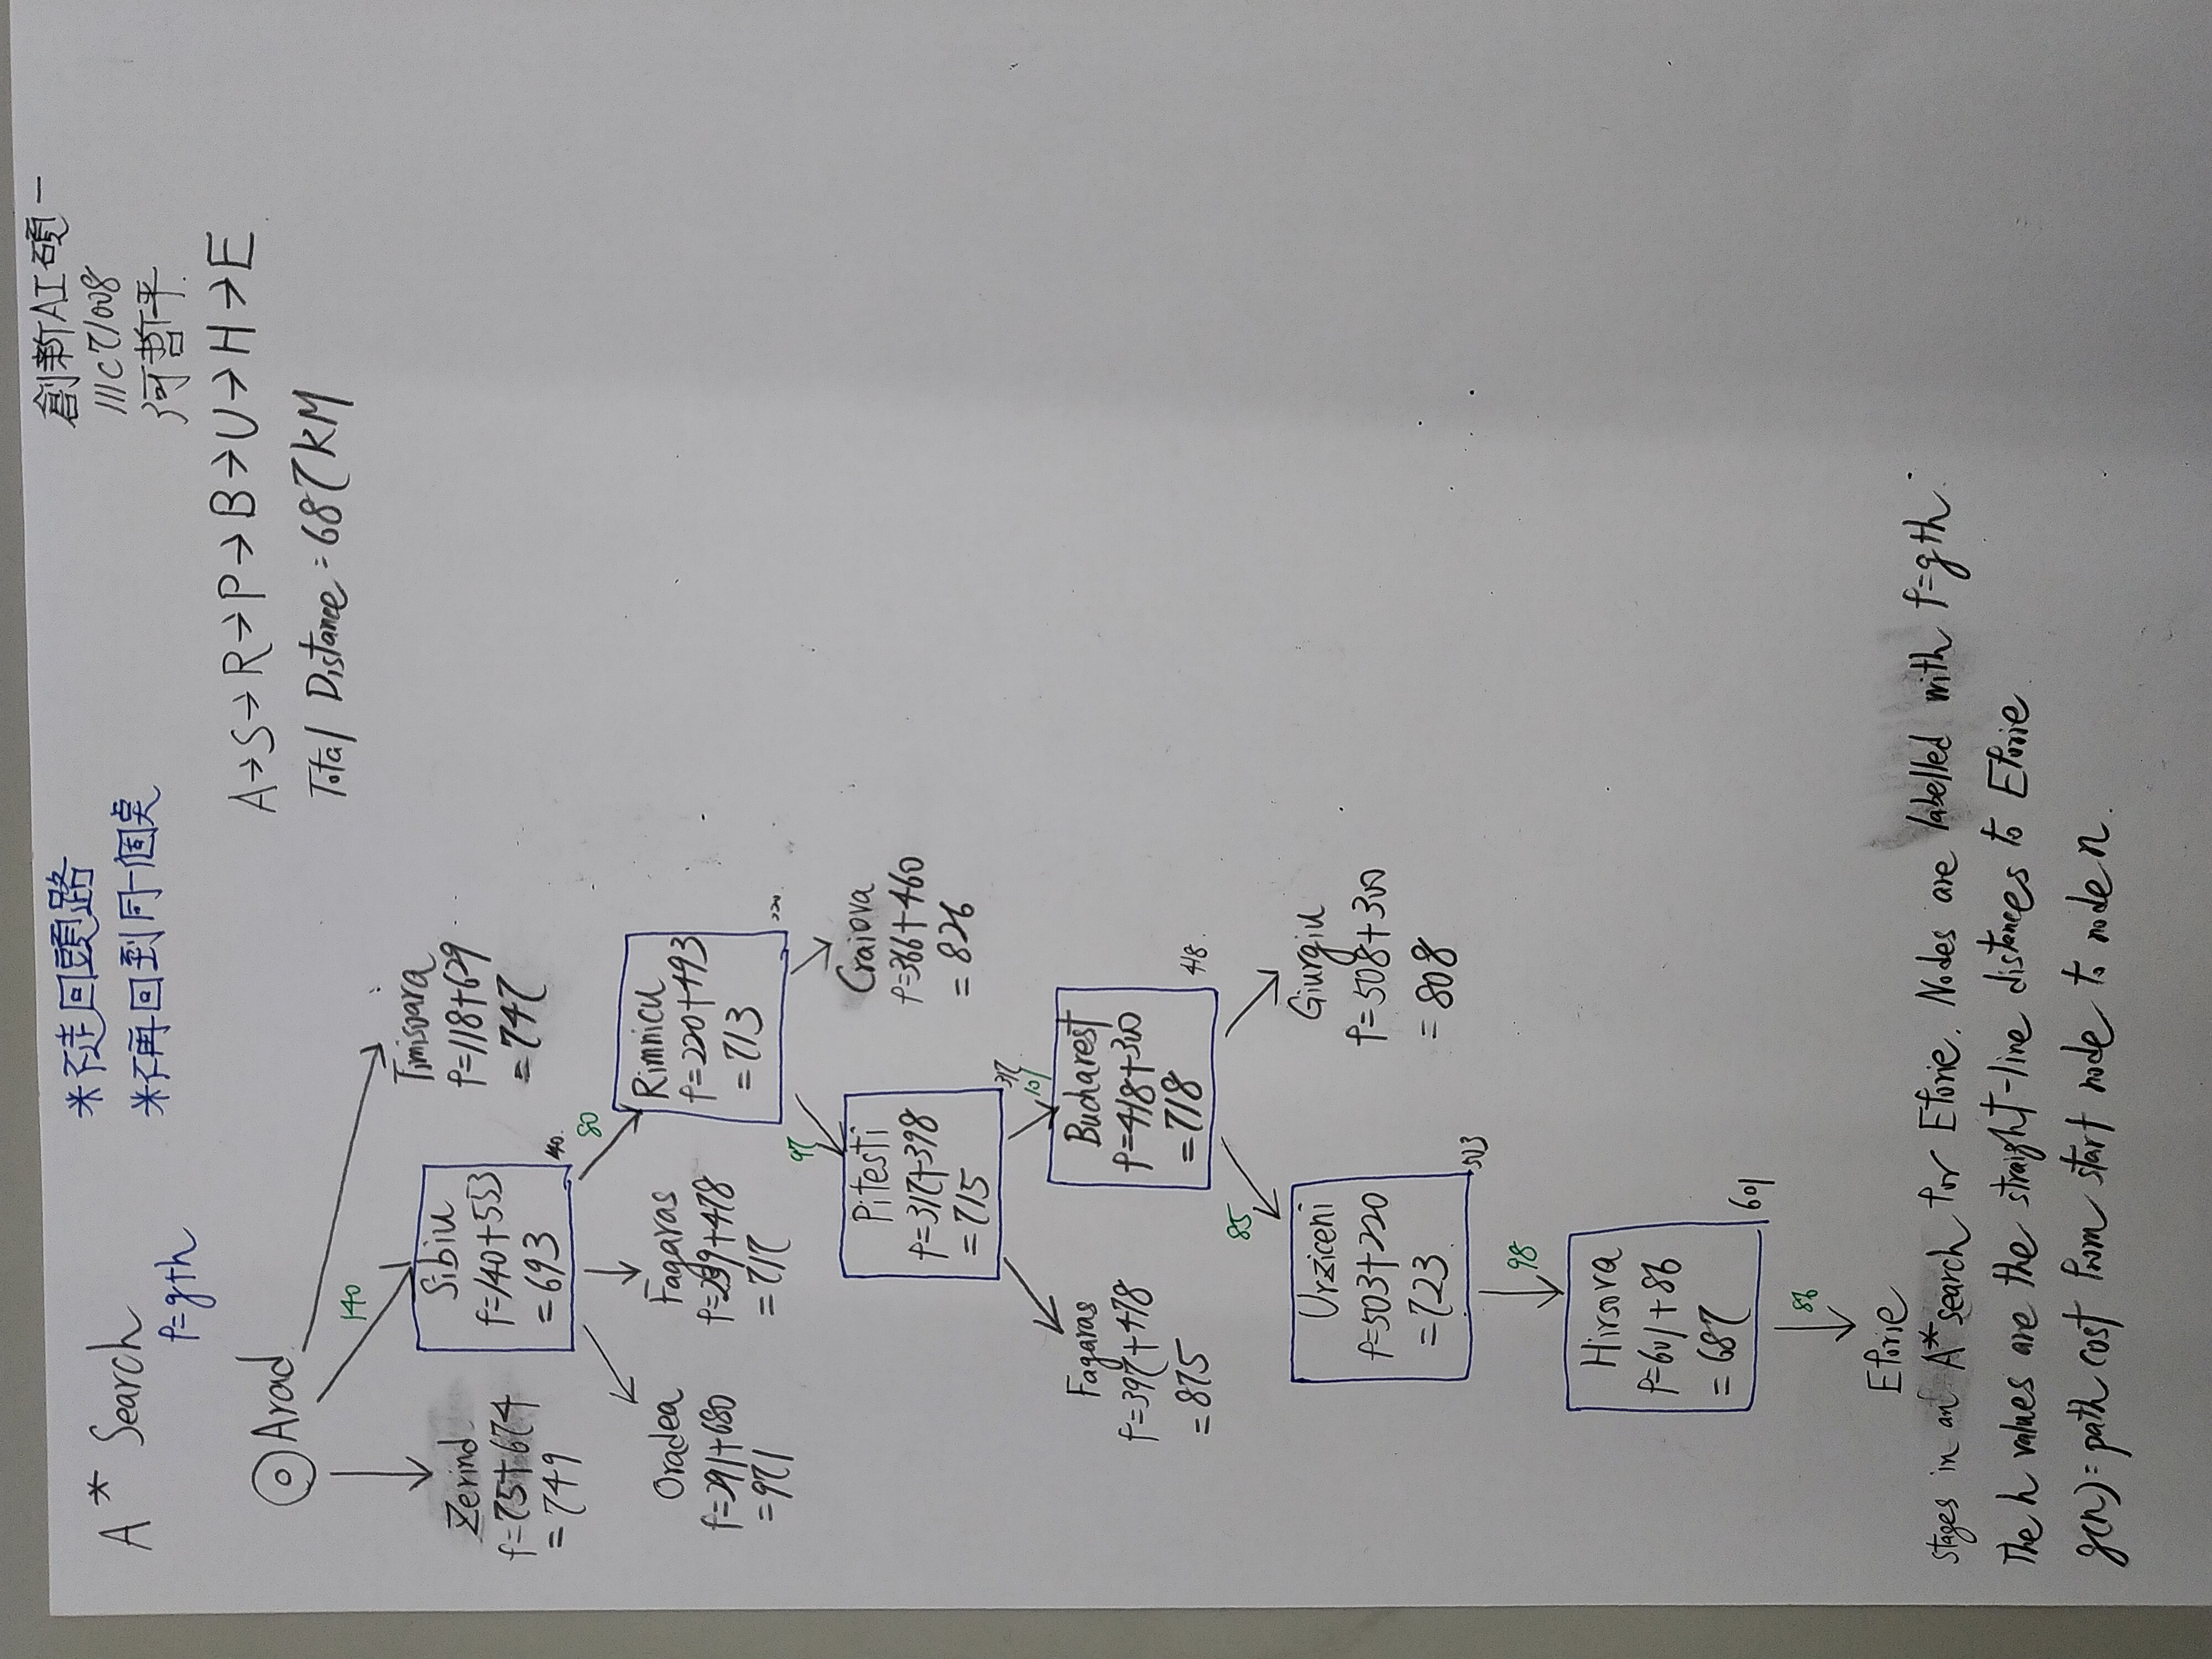 A* Search
f=g+h
*不走回頭路
*不再回到同一個點
創新AI碩一
111C71008
何哲平
A→S→R→P→B→U→H→E
Total Distance=687KM
Arad
140
Zerind
f=75+674
=749
Sibiu
f=140+553
=693
140
Timisoara
f=118+629
=747
80
Oradea
f=291+680
=971
Fagaras
f=239+478
=717
Rimnicu
f=220+493
=713
220
97
Pitesti
f=317+398
=715
317
Craiova
f=366+460
=826
101
Fagaras
f=397+478
=875
Bucharest
f=418+300
=718
418
85
Urziceni
f=503+220
=723
503
Giurgiu
f=508+300
=808
98
Hirsova
f=601+86
=687
601
86
Eforie
stages in an A*search for Eforie. Nodes are labelled with f=g+h.
The h values are the straight-line distances to Eforie
g(n)=path cost from start node to node n.